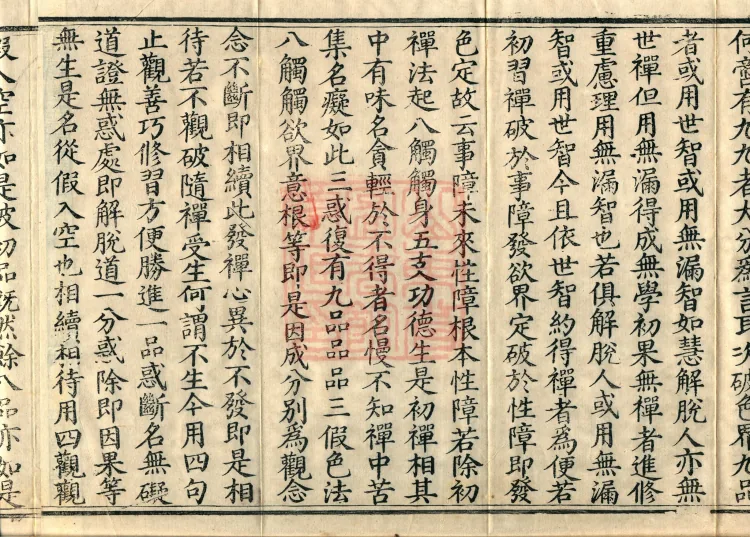 何啻有九九者大分爲言耳次破色界九品
者或用世智或用無漏智如慧解脫人亦無
世禪但用無漏得成無學初果無禪者進修
重慮理用無漏智也若俱解脫人或用無漏
智或用世智今且依世智約得禪者爲便若
初習禪破於事障發欲界定破於性障即發
色定故云事障未來性障根本性障若除初
禪法起八觸觸身五支功德生是初禪相其
中有味名貪輕於不得者名慢不知禪中苦
集名癡如此三惑復有九品品品三假色法
八觸觸欲界意根等即是因成分別爲觀念
念不斷即相續此發禪心異於不發即是相
待若不觀破隨禪受生何謂不生今用四句
止觀善巧修習方便勝進一品惑斷名無礙
道證無惑處即解脫道一分惑除即因果等
無生是名從假入空也相續相待用四觀觀
假入空亦如是破初品旣然餘八品亦如是